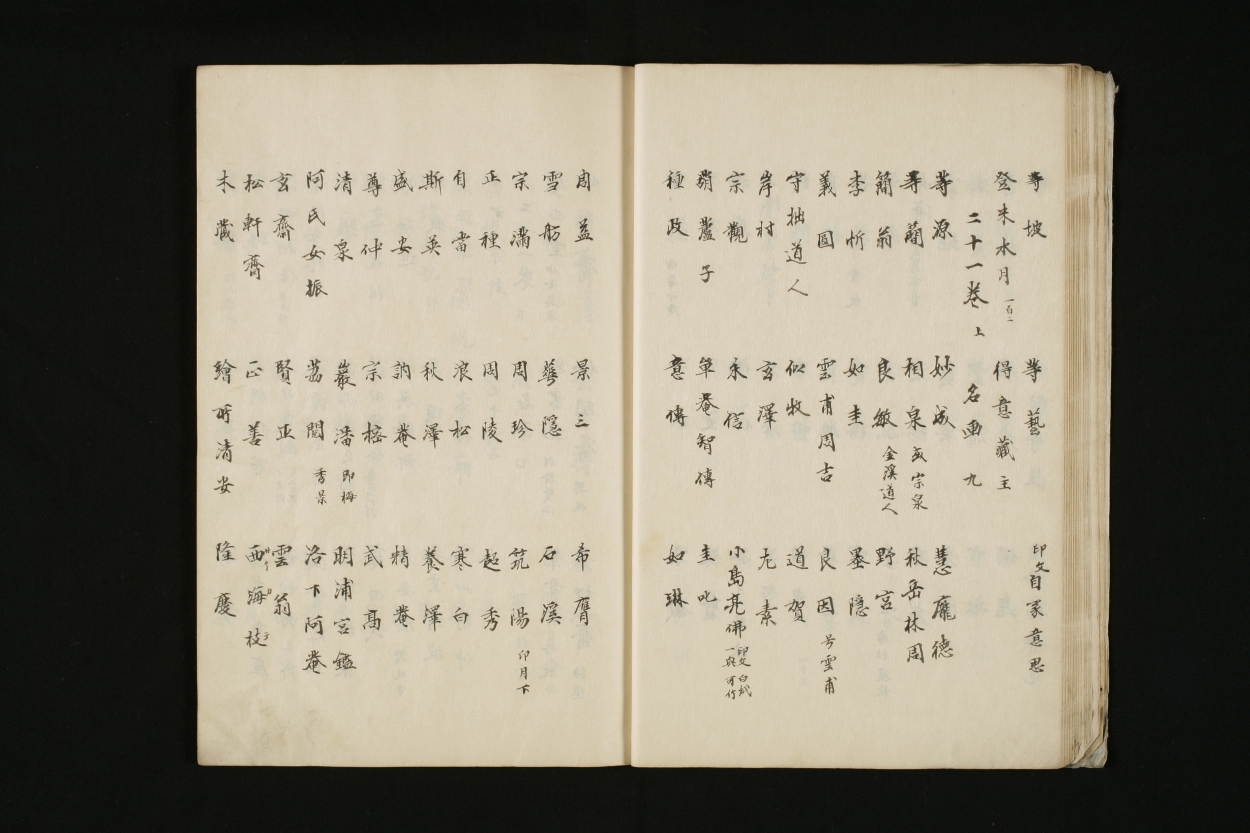 等坡 等藝 印文自家意思
登来水月 一百一 得意藏主
二十一卷上 名画九
等源 妙成 慧龐德
等蘭 相泉 或宗泉 秋岳林周
簡翁 良敏 金溪道人 野宮
李忻 如圭 墨隠
義圓 雲甫周吉 良因 号雲甫
守拙道人 似牧 道賀
岸村 玄澤 尤素
宗觀 永信 小島亮佛 印文
蘆子 単菴智傳 圭叱
種政 意傳 如琳
周益 景三 希膺
雪舫 華隠 石溪
宗滿 周珍 筑陽 印月下
正種 周陵 超秀
自當 浪松 寒白
斯英 秋澤 養澤
盛安 訥菴 精菴
尊仲 宗榕 武高
清泉 巖潘 即梅 明浦宮鑑
阿氏女振 荔閻 秀景 洛下阿菴
玄齋 賢正 雲翁
松軒齋 正善 西海枝
木戲 繪所清安 隆慶